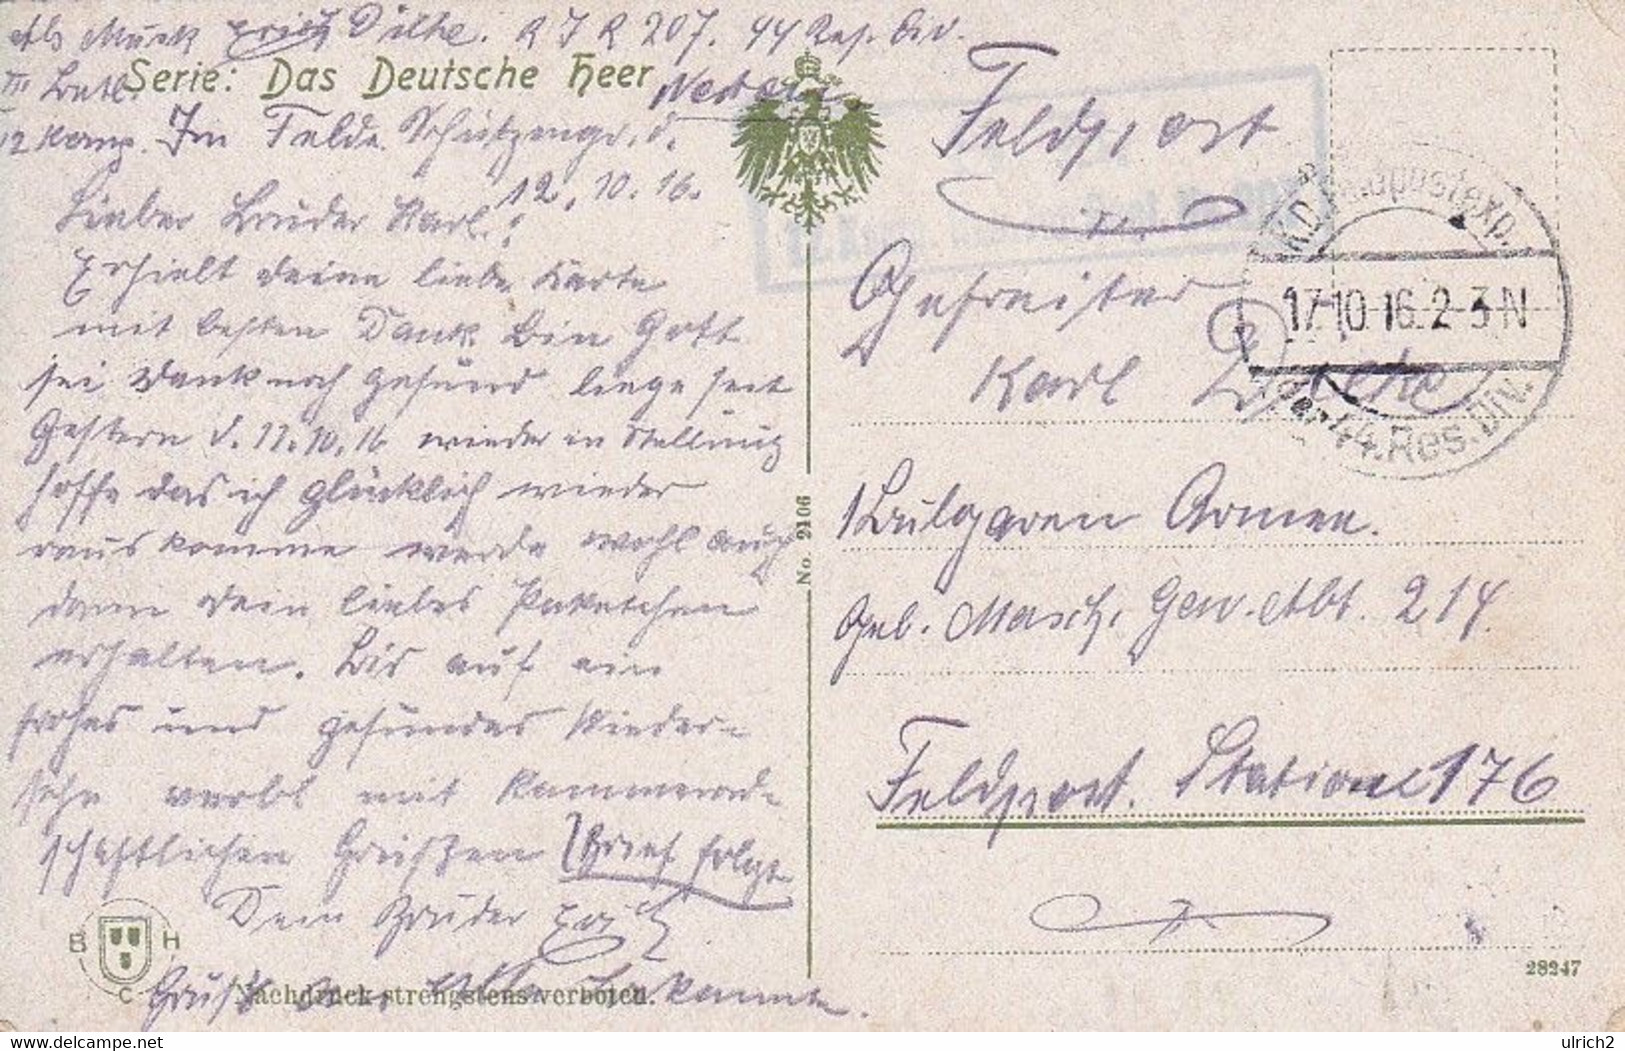 Als Musk Erich Dilhe. R I R 207. 44 Res. Div.
Serie: Das Deutsche Heer
III Batl.
12 Komp. Im Felde Schützengr. d.
12. 10. 16.
Lieber Bruder Karl!
Erhielt deine liebe Karte
mit besten Dank bin Gott
sei Dank noch gesund liege seit
Gestern d. 11.10.16 wieder in Stellung
hoffe das ich glücklich wieder
raus komme werde wohl auch
dann dein liebes Paketchen
erhalten. Bis auf ein
frohes und gesundes Wieder-
sehn verbl mit kammerad-
schaftlichen Grüßen Brief folgt
Dein Bruder Erich
Gruß an Alle Bekannte.
B H
C
Nachdruck strengstens verboten.
No. 2106
Feldpost
Gefreiter
Karl
1 Bulgaren Armee.
Geb. Masch. Gew. Abt. 214.
Feldpost. Station 176
K.D. Feldpostexp.
17.10.16. 2-3 N
44. Res. Div.
28247
ulrich2